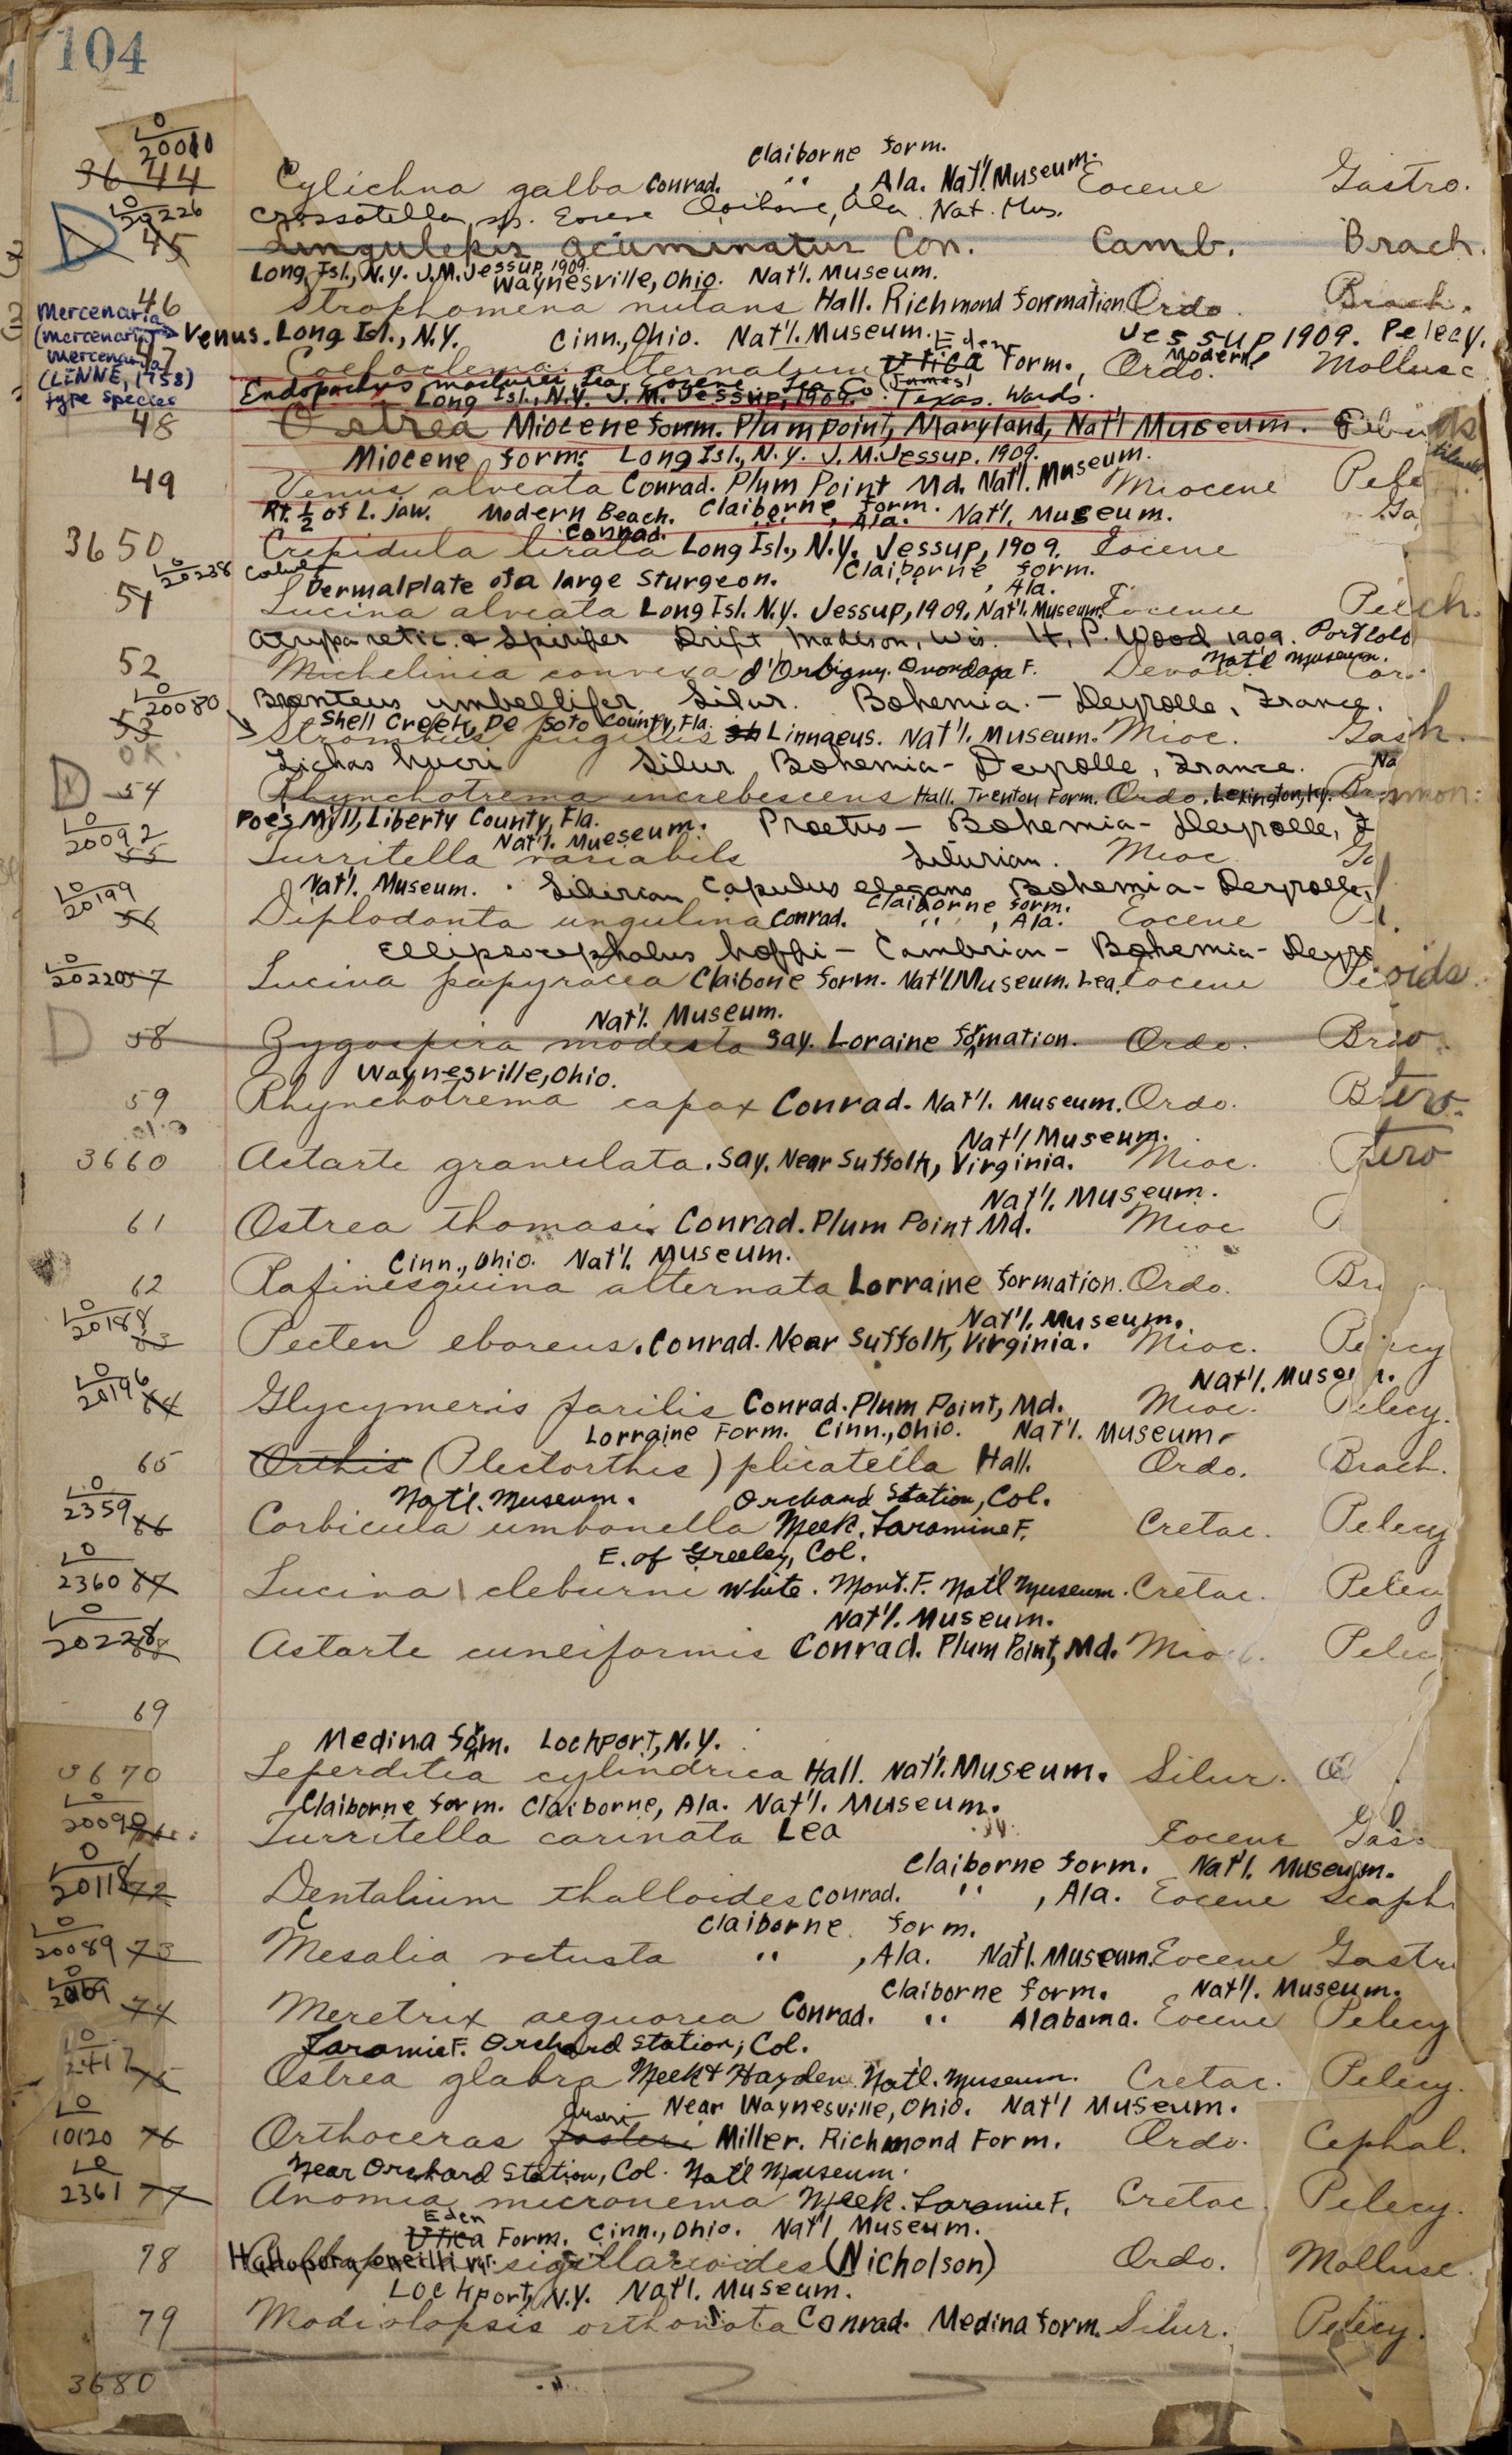 104
LO
20010
Claiborne form.
3644 Cylichna galba Conrad. " , Ala. Nat'l. Museum. Eocene Gastro.
LO
20226
Crassatella sp. Eocene Claiborne, Ala. Nat. Mus.
D 45 Lingulepis acuminatus Con. Camb. Brach.
Long Isl., N.Y. J.M. Jessup, 1909.
Waynesville, Ohio. Nat'l. Museum.
46 Strophomena nutans Hall. Richmond formation Ordo. Brach.
Mercenaria
(mercenaria) Venus. Long Isl., N.Y. Cinn., Ohio. Nat'l. Museum. Eden Jessup 1909. Pelecy.
Mercenaria
47 alternatum Utica Form., Ordo. Modern Mollusc
(LINNE, 1758)
type species
Endopachys maclurei Lea, Eocene Lea Co. (James) Texas. Wards.
Long Isl., N.Y. J.M. Jessup, 1909.
48 Ostrea Miocene form. Plum point, Maryland, Nat'l Museum.
Miocene form. Long Isl., N.Y. J.M. Jessup. 1909.
49 Venus alveata Conrad. Plum Point Md. Nat'l. Museum. Miocene Pele
Rt. ½ of L. jaw. Modern Beach. Claiborne form. , Ala. Nat'l. Museum. Ga
Conrad.
3650 Crepidula lirata Long Isl., N.Y. Jessup, 1909. Eocene
LO
20238
Dermalplate of a large Sturgeon. Claiborne form. , Ala.
51 Lucina alveata Long Isl. N.Y. Jessup, 1909. Nat'l. Museum. Eocene
Atrypa retic. & Spirifer Drift Madison, Wis. H. P. Wood 1909.
52 Michelinia convexa d'Orbigny. Onondaga F. Devon. Nat'l Museum. Cor.
LO
20080
Bronteus umbellifer Silur. Bohemia. - Deyrolle, France.
Shell Creek, De Soto County, Fla.
53 Strombus pugilis Linnaeus. Nat'l. Museum. Mioc. Gas
OK.
Lichas hueri Silur Bohemia - Deyrolle, France.
D 54 Rhynchotrema increbescens Hall. Trenton Form. Ordo. Lexington, Ky.
Poe's Mill, Liberty County, Fla. Proetus - Bohemia - Deyrolle,
LO
20092
Nat'l. Mueseum.
55 Turritella variabils Silurian. Mioc.
LO
20199
Nat'l. Museum. Silurian Capulus elegans Bohemia - Deyrolle,
Claiborne form.
56 Diplodonta ungulina Conrad. " , Ala. Eocene
Ellipsocephalus hoffi - Cambrian - Bohemia - Deyro
LO
20220 57 Lucina papyracea Claibone form. Nat'l Museum. Lea. Eocene
Nat'l. Museum.
D 58 Zygospira modesta Say. Loraine formation. Ordo.
Waynesville, Ohio.
59 Rhynchotrema capax Conrad. Nat'l. Museum. Ordo.
Nat'l Museum.
3660 Astarte granulata. Say. Near Suffolk, Virginia. Mioc.
Nat'l. Museum.
61 Ostrea thomasi Conrad. Plum Point Md. Mioc
Cinn., Ohio. Nat'l. Museum.
62 Rafinesquina alternata Lorraine formation. Ordo.
LO
20188
Nat'l. Museum.
63 Pecten eboreus. Conrad. Near Suffolk, Virginia. Mioc.
LO
20196
Nat'l. Museum.
64 Glycymeris parilis Conrad. Plum Point, Md. Mioc. Pelecy.
Lorraine Form. Cinn., Ohio. Nat'l. Museum.
65 Orthis (Plectorthis) plicatella Hall. Ordo. Brach.
LO
2359
Nat'l. Museum. Orchard Station, Col.
66 Corbicula umbonella Meek. Laramine F. Cretac. Pelecy
E. of Greeley, Col.
LO
2360 67 Lucina cleburni White. Mont. F. Nat'l Museum. Cretac. Pelecy
LO
Nat'l. Museum.
20228 68 Astarte cuneiformis Conrad. Plum Point, Md. Mioc. Pelecy
69
Medina form. Lockport, N.Y.
3670 Leperditia cylindrica Hall. Nat'l. Museum. Silur.
LO
Claiborne form. Claiborne, Ala. Nat'l. Museum.
20090 71 Turritella carinata Lea Eocene Gas
LO
Claiborne form. Nat'l. Museum.
20118 72 Dentalium thalloides Conrad. " , Ala. Eocene Scaph
LO
Claiborne form.
20089 73 Mesalia vetusta " , Ala. Nat'l. Museum. Eocene Gastr
LO
Claiborne form. Nat'l. Museum.
20169 74 Meretrix aequorea Conrad. " Alabama. Eocene Pelecy
LO
Laramie F. Orchard Station, Col.
2417 75 Ostrea glabra Meek & Hayden Nat'l. Museum. Cretac. Pelecy.
LO
Near Waynesville, Ohio. Nat'l Museum.
10120 76 Orthoceras fosteri Miller. Richmond Form. Ordo. Cephal.
LO
Near Orchard Station, Col. Nat'l Museum.
2361 77 Anomia micronema Meek. Laramie F. Cretac. Pelecy.
Eden
Utica Form. Cinn., Ohio. Nat'l Museum.
78 Hallopora oneilli var. sigillarioides (Nicholson) Ordo. Mollusc.
Lockport, N.Y. Nat'l. Museum.
79 Modiolopsis orthonota Conrad. Medina form. Silur. Pelecy.
3680